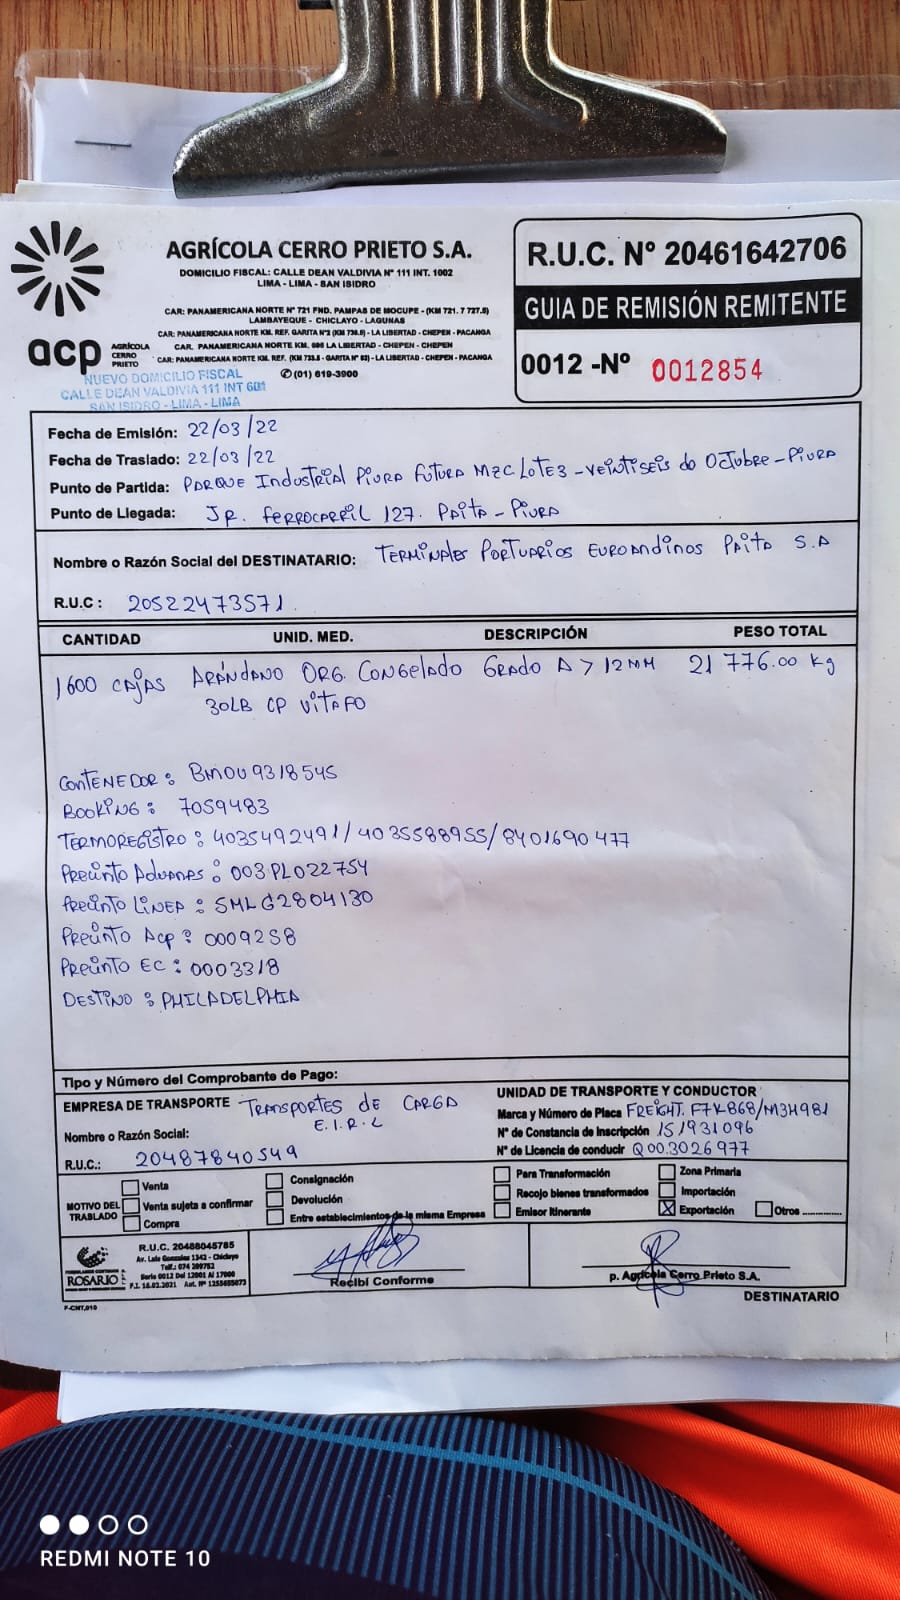 AGRÍCOLA CERRO PRIETO S.A.
DOMICILIO FISCAL: CALLE DEAN VALDIVIA Nº 111 INT. 1002
LIMA - LIMA - SAN ISIDRO
CAR: PANAMERICANA NORTE Nº 721 FND. PAMPAS DE MOCUPE - (KM 721. 7 727.5)
LAMBAYEQUE - CHICLAYO - LAGUNAS
CAR: PANAMERICANA NORTE KM. REF. GARITA Nº2 (KM 736.5) - LA LIBERTAD - CHEPEN - PACANGA
CAR. PANAMERICANA NORTE KM. 696 LA LIBERTAD - CHEPEN - CHEPEN
CAR: PANAMERICANA NORTE KM. REF. (KM 733.5 - GARITA Nº 03) - LA LIBERTAD - CHEPEN - PACANGA
(01) 619-3900
acp AGRÍCOLA CERRO PRIETO
NUEVO DOMICILIO FISCAL
CALLE DEAN VALDIVIA 111 INT 601
SAN ISIDRO - LIMA - LIMA
R.U.C. Nº 20461642706
GUIA DE REMISIÓN REMITENTE
0012 -Nº 0012854
Fecha de Emisión: 22/03/22
Fecha de Traslado: 22/03/22
Punto de Partida: PARQUE Industrial Piura Futura MZC LOTE3 - Veintiseis de Octubre - Piura
Punto de Llegada: Jr. Ferrocarril 127. Paita - Piura
Nombre o Razón Social del DESTINATARIO: Terminales Portuarios Euroandinos Paita S.A
R.U.C: 20522473571.
CANTIDAD UNID. MED. DESCRIPCIÓN PESO TOTAL
1600 cajas Arándano Org. Congelado Grado A > 12MM 21 776.00 kg
30LB CP Vitafo
Contenedor: BMOU9318545
Booking: 7059483
Termoregistro: 4035492491/4035588955/8401690477
Precinto Aduanas: 003PL022754
Precinto Linea: SMLG2804130
Precinto Acp: 0009258
Precinto EC: 0003318
Destino: PHILADELPHIA
Tipo y Número del Comprobante de Pago:
EMPRESA DE TRANSPORTE Transportes de Carga
E.I.R.L
Nombre o Razón Social:
R.U.C.: 20487840549
UNIDAD DE TRANSPORTE Y CONDUCTOR
Marca y Número de Placa FREIGHT. F7K868/M3H981
Nº de Constancia de Inscripción 151931096
Nº de Licencia de conducir Q00.3026977
MOTIVO DEL TRASLADO
Venta
Venta sujeta a confirmar
Compra
Consignación
Devolución
Entre establecimientos de la misma Empresa
Para Transformación
Recojo bienes transformados
Emisor Itinerante
Zona Primaria
Importación
X Exportación
Otros ............
ROSARIO
R.U.C. 20488045785
Av. Luis Gonzales 1342 - Chiclayo
Serie 0012 Del 12001 Al 17000
Recibí Conforme
p. Agrícola Cerro Prieto S.A.
DESTINATARIO
F-CNT.010
REDMI NOTE 10